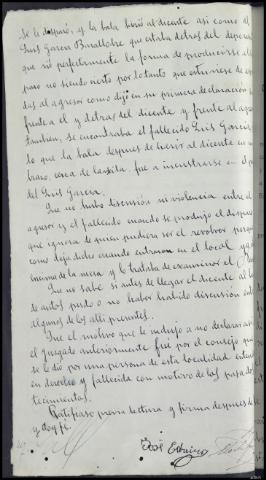 se le disparó, y la bala hirió al dicente así como al
Luis García Baratlobre que estaba detras del depo
que vió perfectamente la forma de producirse el
paro no siendo cierto por lo tanto que estuviese de es
das al agresor como dijo en su primera declaración
frente a el y detras del dicente y frente al agre
tambien, se encontraba el fallecido Luis García
lo que la bala despues de herir al dicente en un
brazo, cerca de la, fue a incrustarse en el
del Luis García.
Que no hubo discusión ni violencia entre el
agresor y el fallecido cuando se produjo el disparo
que ignora de quien pudiera ser el revolver porque
como deja dicho cuando entraron en el local ya
encima de la mesa y lo trataba de examinar el
Que no sabe si antes de llegar el dicente al
de autos pudo o no haber habido discusión entre
algunos de los alli presentes.
Que el motivo que le indujo a no declarar en
el juzgado anteriormente fué por el consejo que
se le dió por una persona de esta localidad
en derecho y fallecida con motivo de los pasados
tecimientos.
Ratificase previa lectura y firma despues de
y doy fé.
José